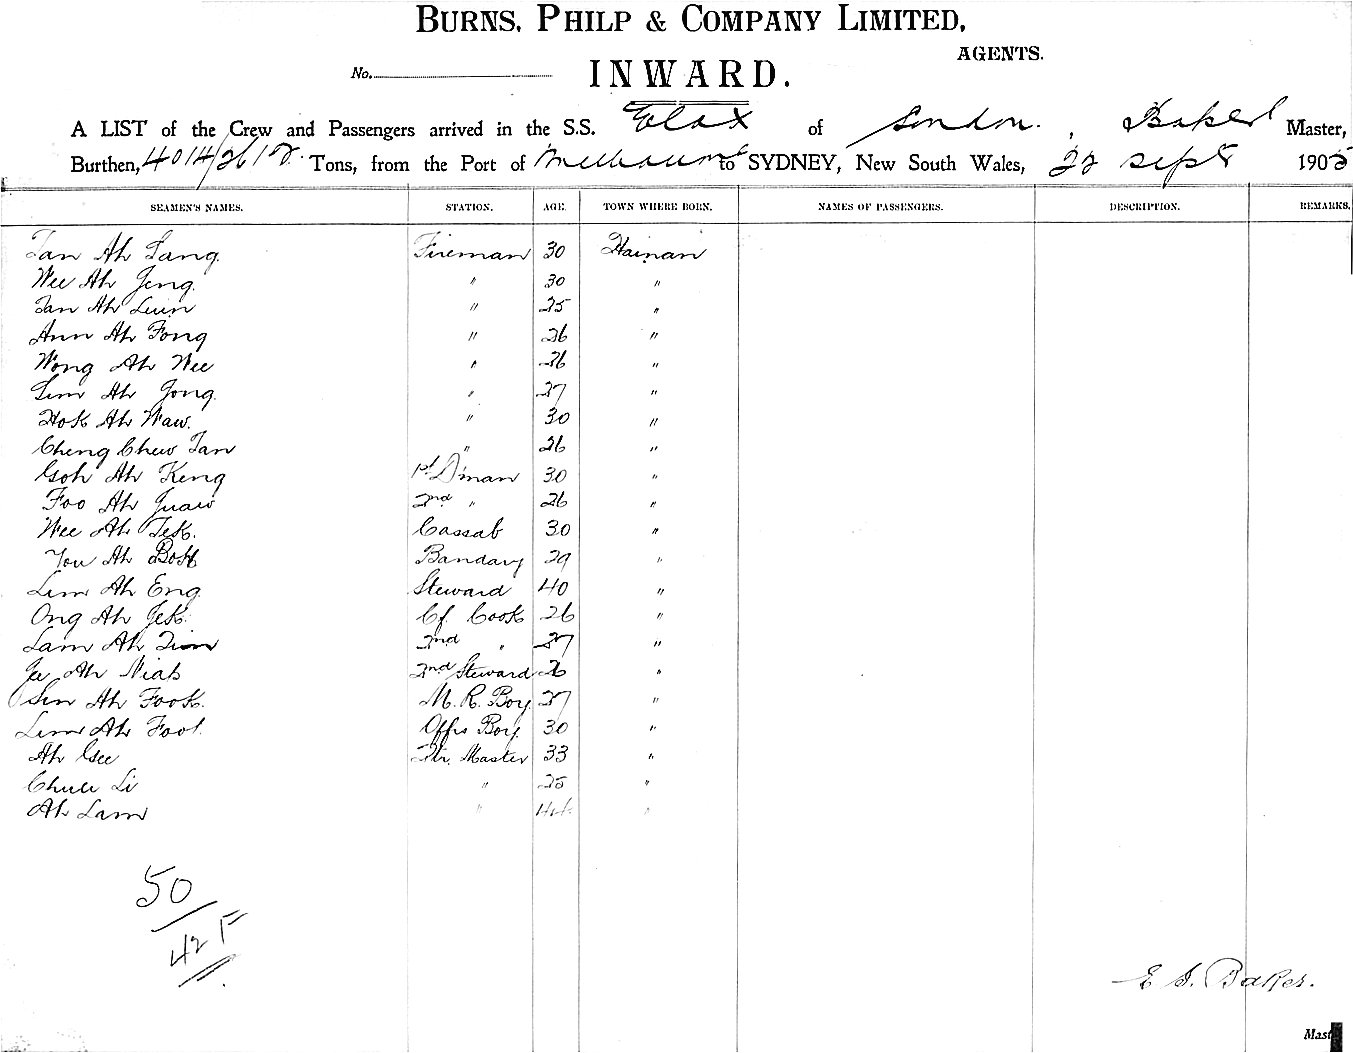 BURNS, PHILP & COMPANY LIMITED,
AGENTS.
No. INWARD.
A LIST of the Crew and Passengers arrived in the S.S. Elax of London. , Baker Master,
Burthen, 4014/2612 Tons, from the Port of Melbourne to SYDNEY, New South Wales, 22 Sept 1905
SEAMEN'S NAMES. STATION. AGE. TOWN WHERE BORN. NAMES OF PASSENGERS. DESCRIPTION. REMARKS.
Tan Ah Sang. Fireman 30 Hainan
Wee Ah Jeng. " 30 "
Tan Ah Luin " 25 "
Ann Ah Fong " 26 "
Wong Ah Wee " 26 "
Lim Ah Jong. " 27 "
Hok Ah Waw. " 30 "
Cheng Chew Tan " 26 "
Goh Ah Keng 1st D'man 30 "
Foo Ah Juaw 2nd " 26 "
Wee Ah Tek. Cassab 30 "
You Ah Bok Bandary 29 "
Lim Ah Eng Steward 40 "
Ong Ah Jek. Cf. Cook 26 "
Lam Ah 2nd " 27 "
Ah Niab 2nd Steward 26 "
Sin Ah Fook. M. R. Boy. 27 "
Lim Ah Foot. Offrs Boy. 30 "
Ah Gee Qtr. Master 33 "
Li " 25 "
Ah Lam " 44 "
50
42 F
E J. Baker.
Mast